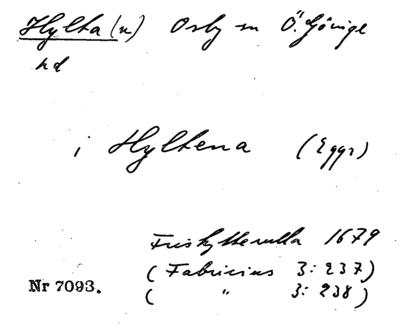 Hylta(n) Osby sn Ö. Göinge
hd
i Hyltena (Eggr)
Friskytterulla 1679
(Fabricius 3: 237)
( " 3: 238)
Nr 7093.